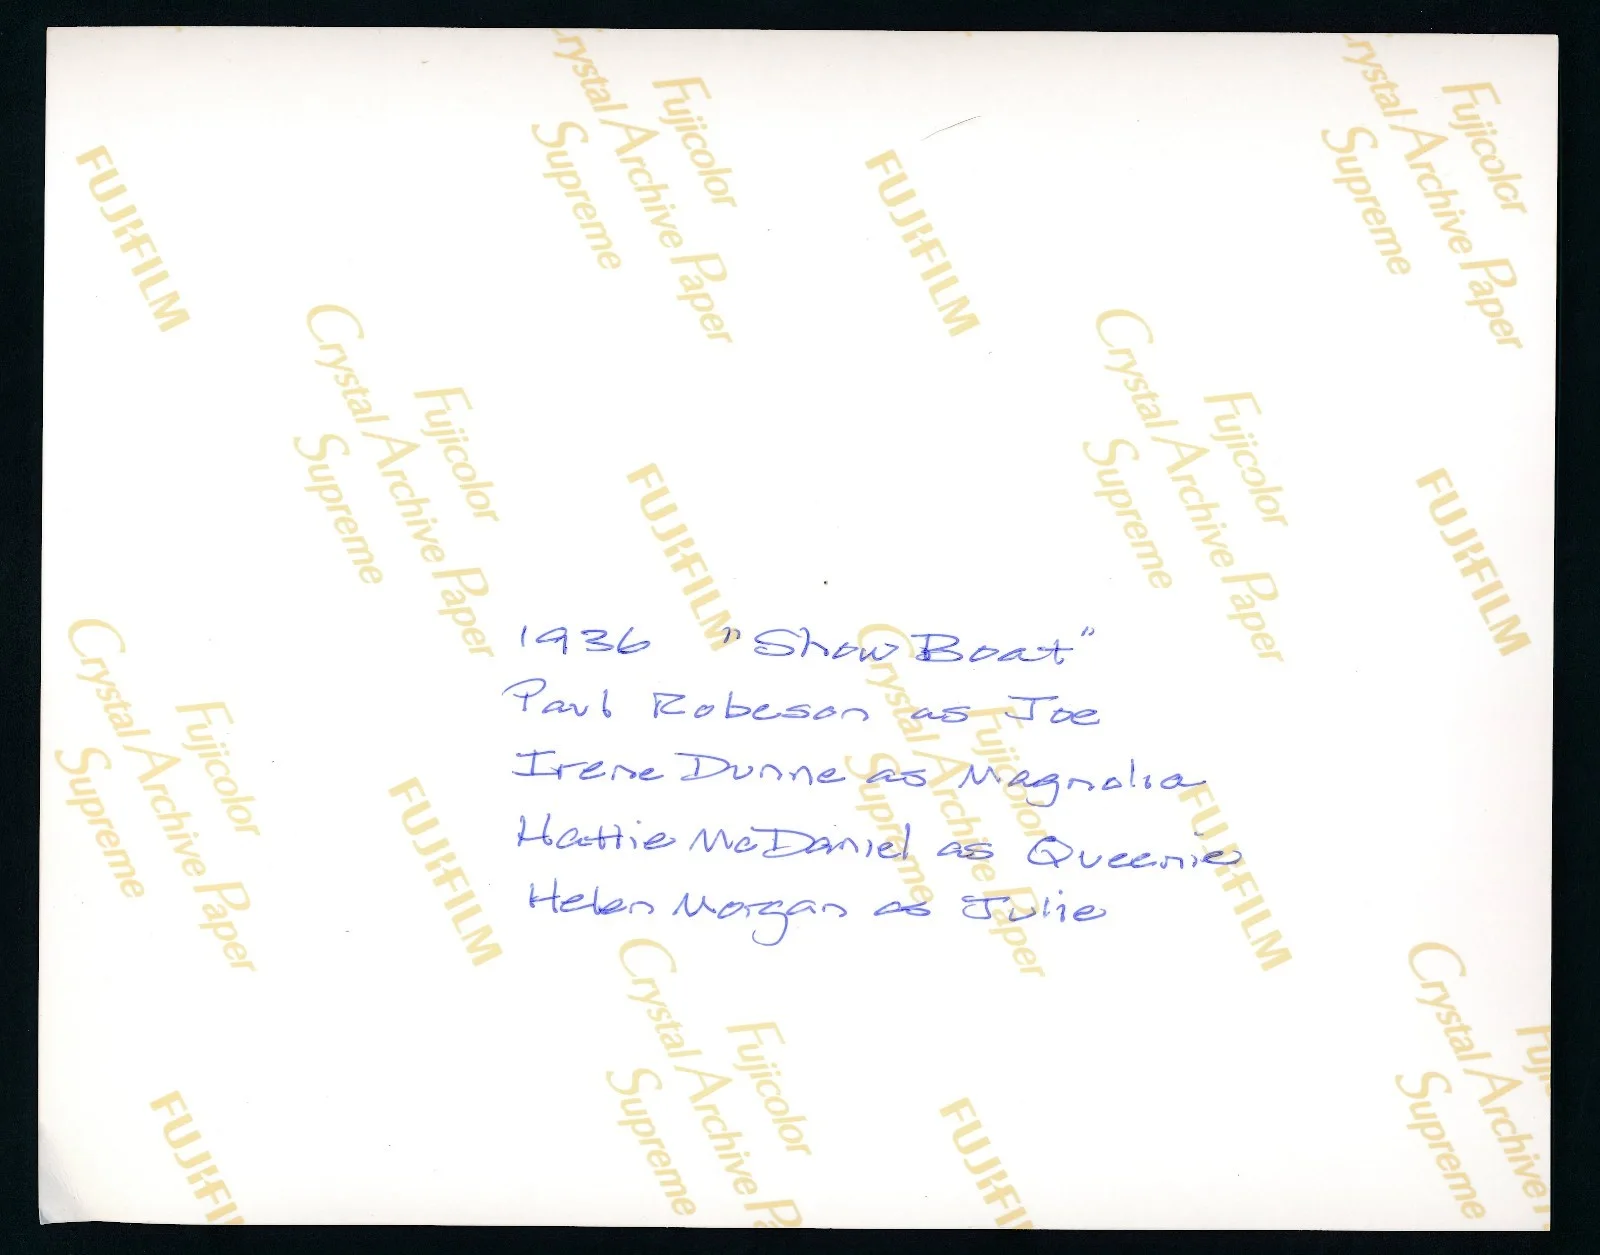 Fujicolor
Crystal Archive Paper
Supreme
Fujicolor
Crystal Archive Paper
Supreme
FUJIFILM
FUJIFILM
Fujicolor
Crystal Archive Paper
Supreme
Fujicolor
Crystal Archive Paper
Supreme
FUJIFILM
FUJIFILM
1936 "Show Boat"
Paul Robeson as Joe
Irene Dunne as Magnolia
Hattie McDaniel as Queenie
Helen Morgan as Julie
Fujicolor
Crystal Archive Paper
Supreme
Fujicolor
Crystal Archive Paper
Supreme
FUJIFILM
FUJIFILM
Fujicolor
Crystal Archive Pa
Supreme
Fuji
Crystal Archive
Supreme
FUJIFI
FUJIFI